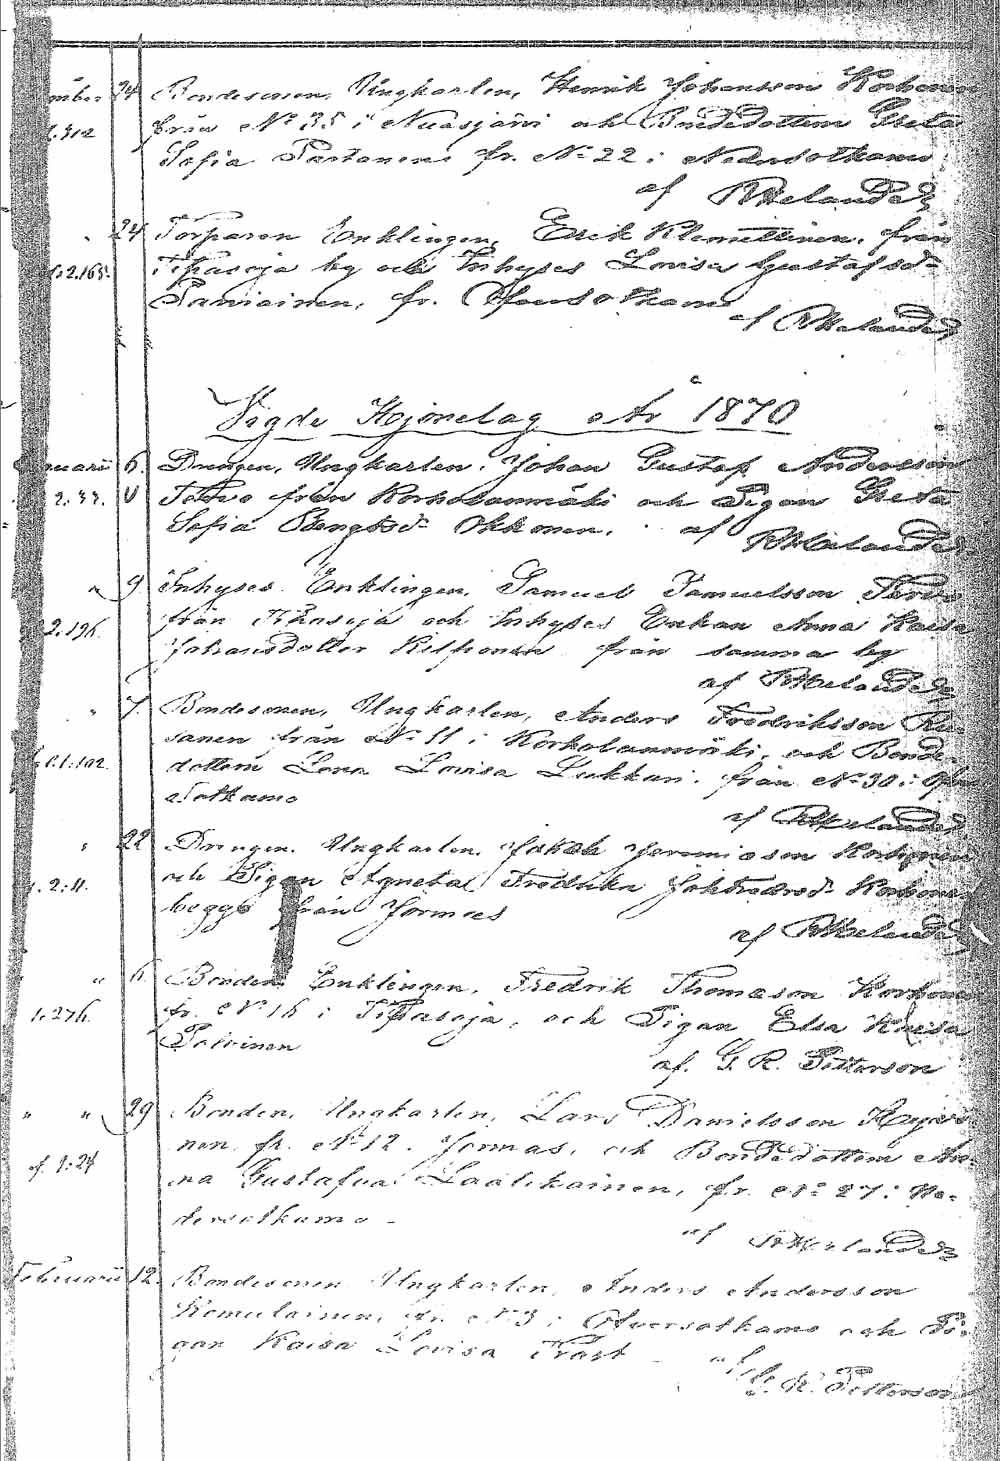 mber 24 Bondesonen, Ungkarlen, Henrik Johansson Korhonen
från No 35 i Nuasjärvi och Bondedottern Greta
Sofia Partanen fr. No 22 i Nedersotkamo
af Melander
" 24 Torparen Enklingen, Erik Klemettinen, från
Tipasoja by och Inhyses Lovisa Gustafsd:
Paniainen, fr. Öfversotkamo
af Melander
Vigde Hjonelag År 1870
nuarii 6. Drengen, Ungkarlen, Johan Gustaf Andersson
2.33. Tervo från Korholanmäki och Pigan Greta
Sofia Bengtsdr Okkonen. af Melander
" 9 Inhyses Enklingen, Samuel Samuelsson Tervo
2.196. från Tipasoja och Inhyses Enkan Anna Kaisa
Johansdotter Kilponen från samma by
af Melander
" 7. Bondesonen, Ungkarlen, Anders Fredriksson Ru-
sanen från No 11 i Korholanmäki, och Bonde-
1:102. dottern Lena Lovisa Lukkari, från No 30 i Öfver
Sotkamo
af Melander
" 22 Drengen, Ungkarlen, Jakob Jeremiasson Korhonen
2:11. och Pigan Agneta Fredrika Korhonen
begge från Jormas
af Melander
" 6 Bonden Enklingen, Fredrik Thomasson Korhonen
1.276. fr. No 16 i Tipasoja, och Pigan Elsa Kaisa
Polvinen
af. G. R. Petterson
" " 29 Bonden, Ungkarlen, Lars Danielsson Heperi-
nen fr. No 12. Jormas, och Bondedottern An-
of. 1:24 na Gustafva Laatikainen, fr. No 27 i Ne-
dersotkamo -
af Melander
Februarii 12. Bondesonen Ungkarlen, Anders Andersson
Komulainen, fr. No 3 i Öfversotkamo och Pi-
gan Kaisa Lovisa Trast
af G. R. Petterson